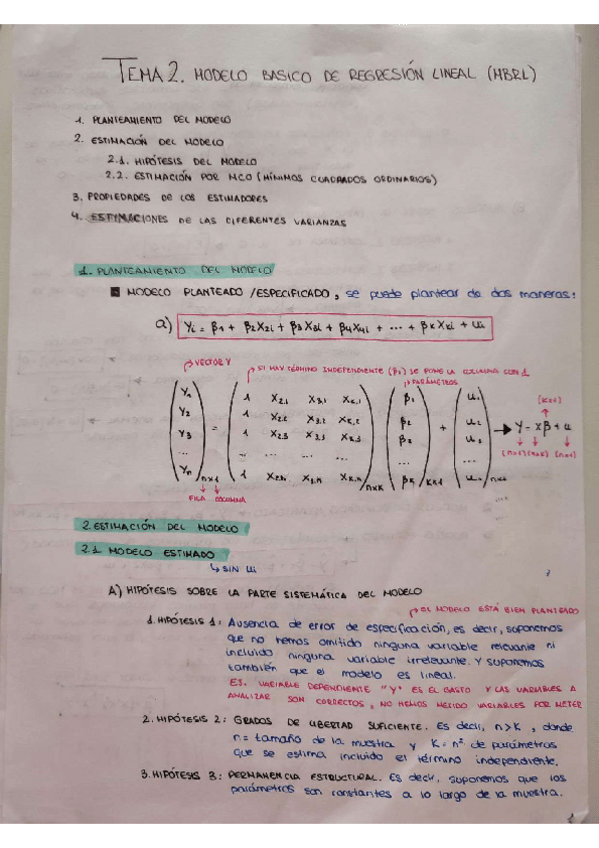 TEMA 2. MODELO BASICO DE REGRESIÓN LINEAL (MBRL)
1. PLANTEAMIENTO DEL MODELO
2. ESTIMACIÓN DEL MODELO
2.1. HIPÓTESIS DEL MODELO
2.2. ESTIMACIÓN POR MCO (MÍNIMOS CUADRADOS ORDINARIOS)
3. PROPIEDADES DE LOS ESTIMADORES
4. ESTIMACIONES DE LAS DIFERENTES VARIANZAS
1. PLANTEAMIENTO DEL MODELO
MODELO PLANTEADO / ESPECIFICADO, se puede plantear de dos maneras:
a) Yi = β1 + β2X2i + β3X3i + β4X4i + ... + βKXKi + ui
VECTOR Y
SI HAY TÉRMINO INDEPENDIENTE (β1) SE PONE LA COLUMNA CON 1
PARÁMETROS
(K×1)
Y1 1 X2.1 X3.1 XK.1 β1 u1
Y2 1 X2.2 X3.2 XK.2 β2 u2
Y3 = 1 X2.3 X3.3 XK.3 β3 + u3 → Y = Xβ + u
... ... ... ... ... ... ... (n×1) (n×K) (n×1)
Yn n×1 1 X2.n X3.n XK.n n×K βK K×1 un n×1
FILA COLUMNA
2. ESTIMACIÓN DEL MODELO
2.1 MODELO ESTIMADO
↳ SIN ui
A) HIPÓTESIS SOBRE LA PARTE SISTEMÁTICA DEL MODELO
EL MODELO ESTÁ BIEN PLANTEADO
1. HIPÓTESIS 1: Ausencia de error de especificación, es decir, suponemos
que no hemos omitido ninguna variable relevante ni
incluido ninguna variable irrelevante. Y suponemos
también que el modelo es lineal.
EJ. VARIABLE DEPENDIENTE "Y" ES EL GASTO Y LAS VARIABLES A
ANALIZAR SON CORRECTOS, NO HEMOS METIDO VARIABLES POR METER
2. HIPÓTESIS 2: GRADOS DE LIBERTAD SUFICIENTE. Es decir, n>K, donde
n = tamaño de la muestra y K = nº de parámetros
que se estima incluido el término independiente.
3. HIPÓTESIS 3: PERMANENCIA ESTRUCTURAL. Es decir, suponemos que los
parámetros son constantes a lo largo de la muestra.
1